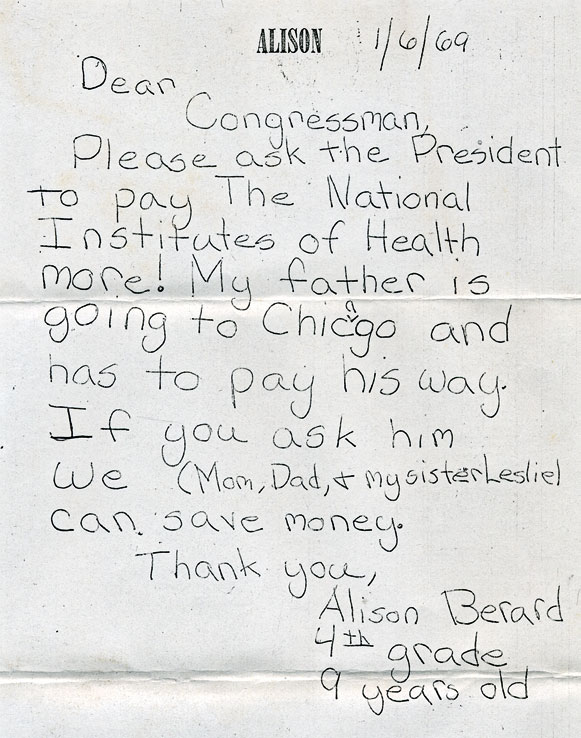 ALISON 1/6/69
Dear
Congressman,
Please ask the President
to pay The National
Institutes of Health
more! My father is
going to Chicago and
has to pay his way.
If you ask him
we (Mom, Dad, & my sister Leslie)
can save money.
Thank you,
Alison Berard
4th grade
9 years old